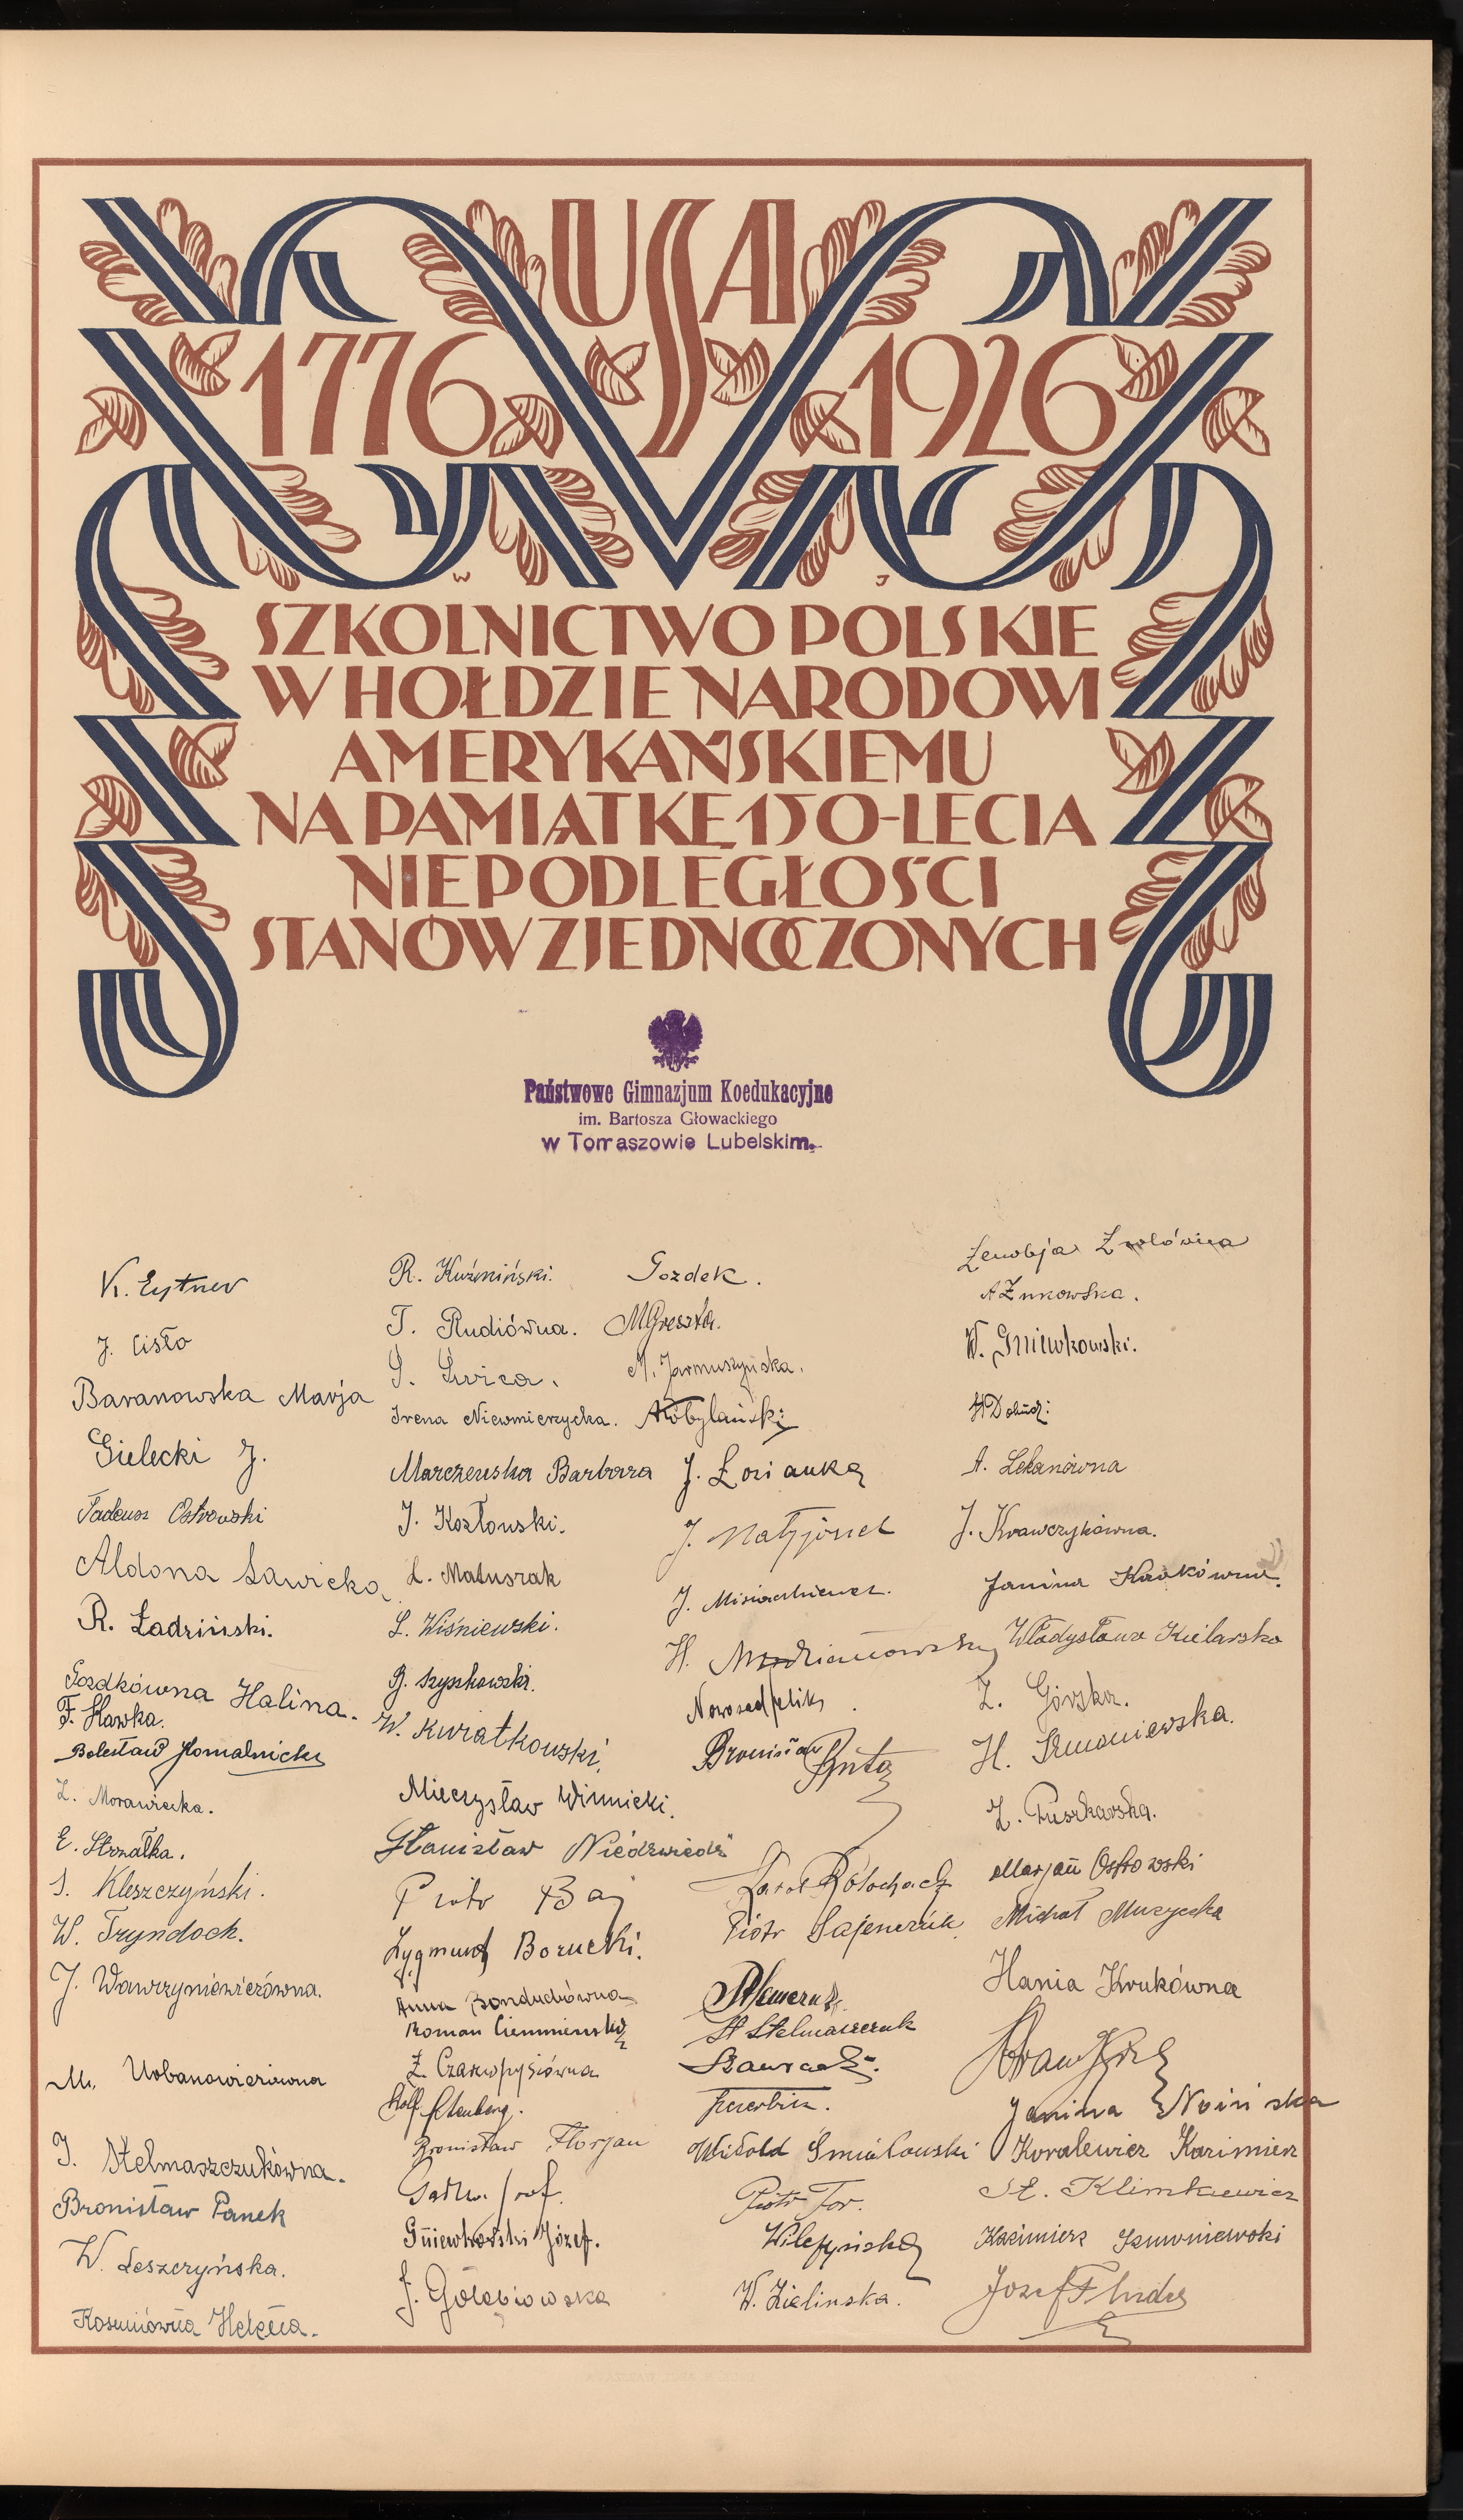 USA
1776 1926
W J
SZKOLNICTWO POLSKIE
W HOŁDZIE NARODOWI
AMERYKAŃSKIEMU
NA PAMIĄTKĘ 150-LECIA
NIEPODLEGŁOŚCI
STANÓW ZJEDNOCZONYCH
Państwowe Gimnazjum Koedukacyjne
im. Bartosza Głowackiego
w Tomaszowie Lubelskim.
K. Eytner
J. Cisło
Baranowska Marja
Gielecki J.
Tadeusz Ostrowski
Aldona Sawicka
R. Ładziński.
Gozdkówna Halina.
F. Hawka.
Bolesław
L. Morawiecka.
E. Strzałka.
S. Kleszczyński.
W. Tryndoch.
J. Wawrzyniewiczówna.
M. Urbanowiczówna
J. Stelmaszczukówna.
Bronisław Panek
W. Leszczyńska.
Kosmiówna Helena.
R. Kuźmiński.
T. Rudiówna.
Irena Niewmierzycka.
Marczewska Barbara
J. Kozłowski.
L. Matuszak
L. Wiśniewski.
B. Szyszkowski.
W. Kwiatkowski.
Mieczysław Winnicki.
Stanisław Niedźwiedź
Piotr Baj
Zygmunt Borucki.
Anna Bonduchówna
Roman
Bronisław Florjan
Gniewkowski Józef.
J. Gołębiowska
Gozdek.
M. Greszta.
M. Jarmuszyńska.
A. Kobylański
J. Łosianka
J. Matyjonek
J. Misiarkiewicz.
H.
Nowosad Feliks
Bronisław Buta
Karol
Piotr Sajenczuk
St Stelmaszczuk
Witold Śmiałowski
Piotr Tor.
W. Zielinska.
Zenobja
A Żukowska.
W. Gniewkowski.
A. Lekanówna
J. Krawczykówna.
Janina
Władysława Kielarska
Z. Górska.
H. Szmoniewska.
Z. Puszkarska.
Marjan Ostrowski
Michał Muzyczka
Hania Krukówna
Janina
Kowalewicz Kazimierz
St. Klimkiewicz
Kazimierz Szumniewski
Józef